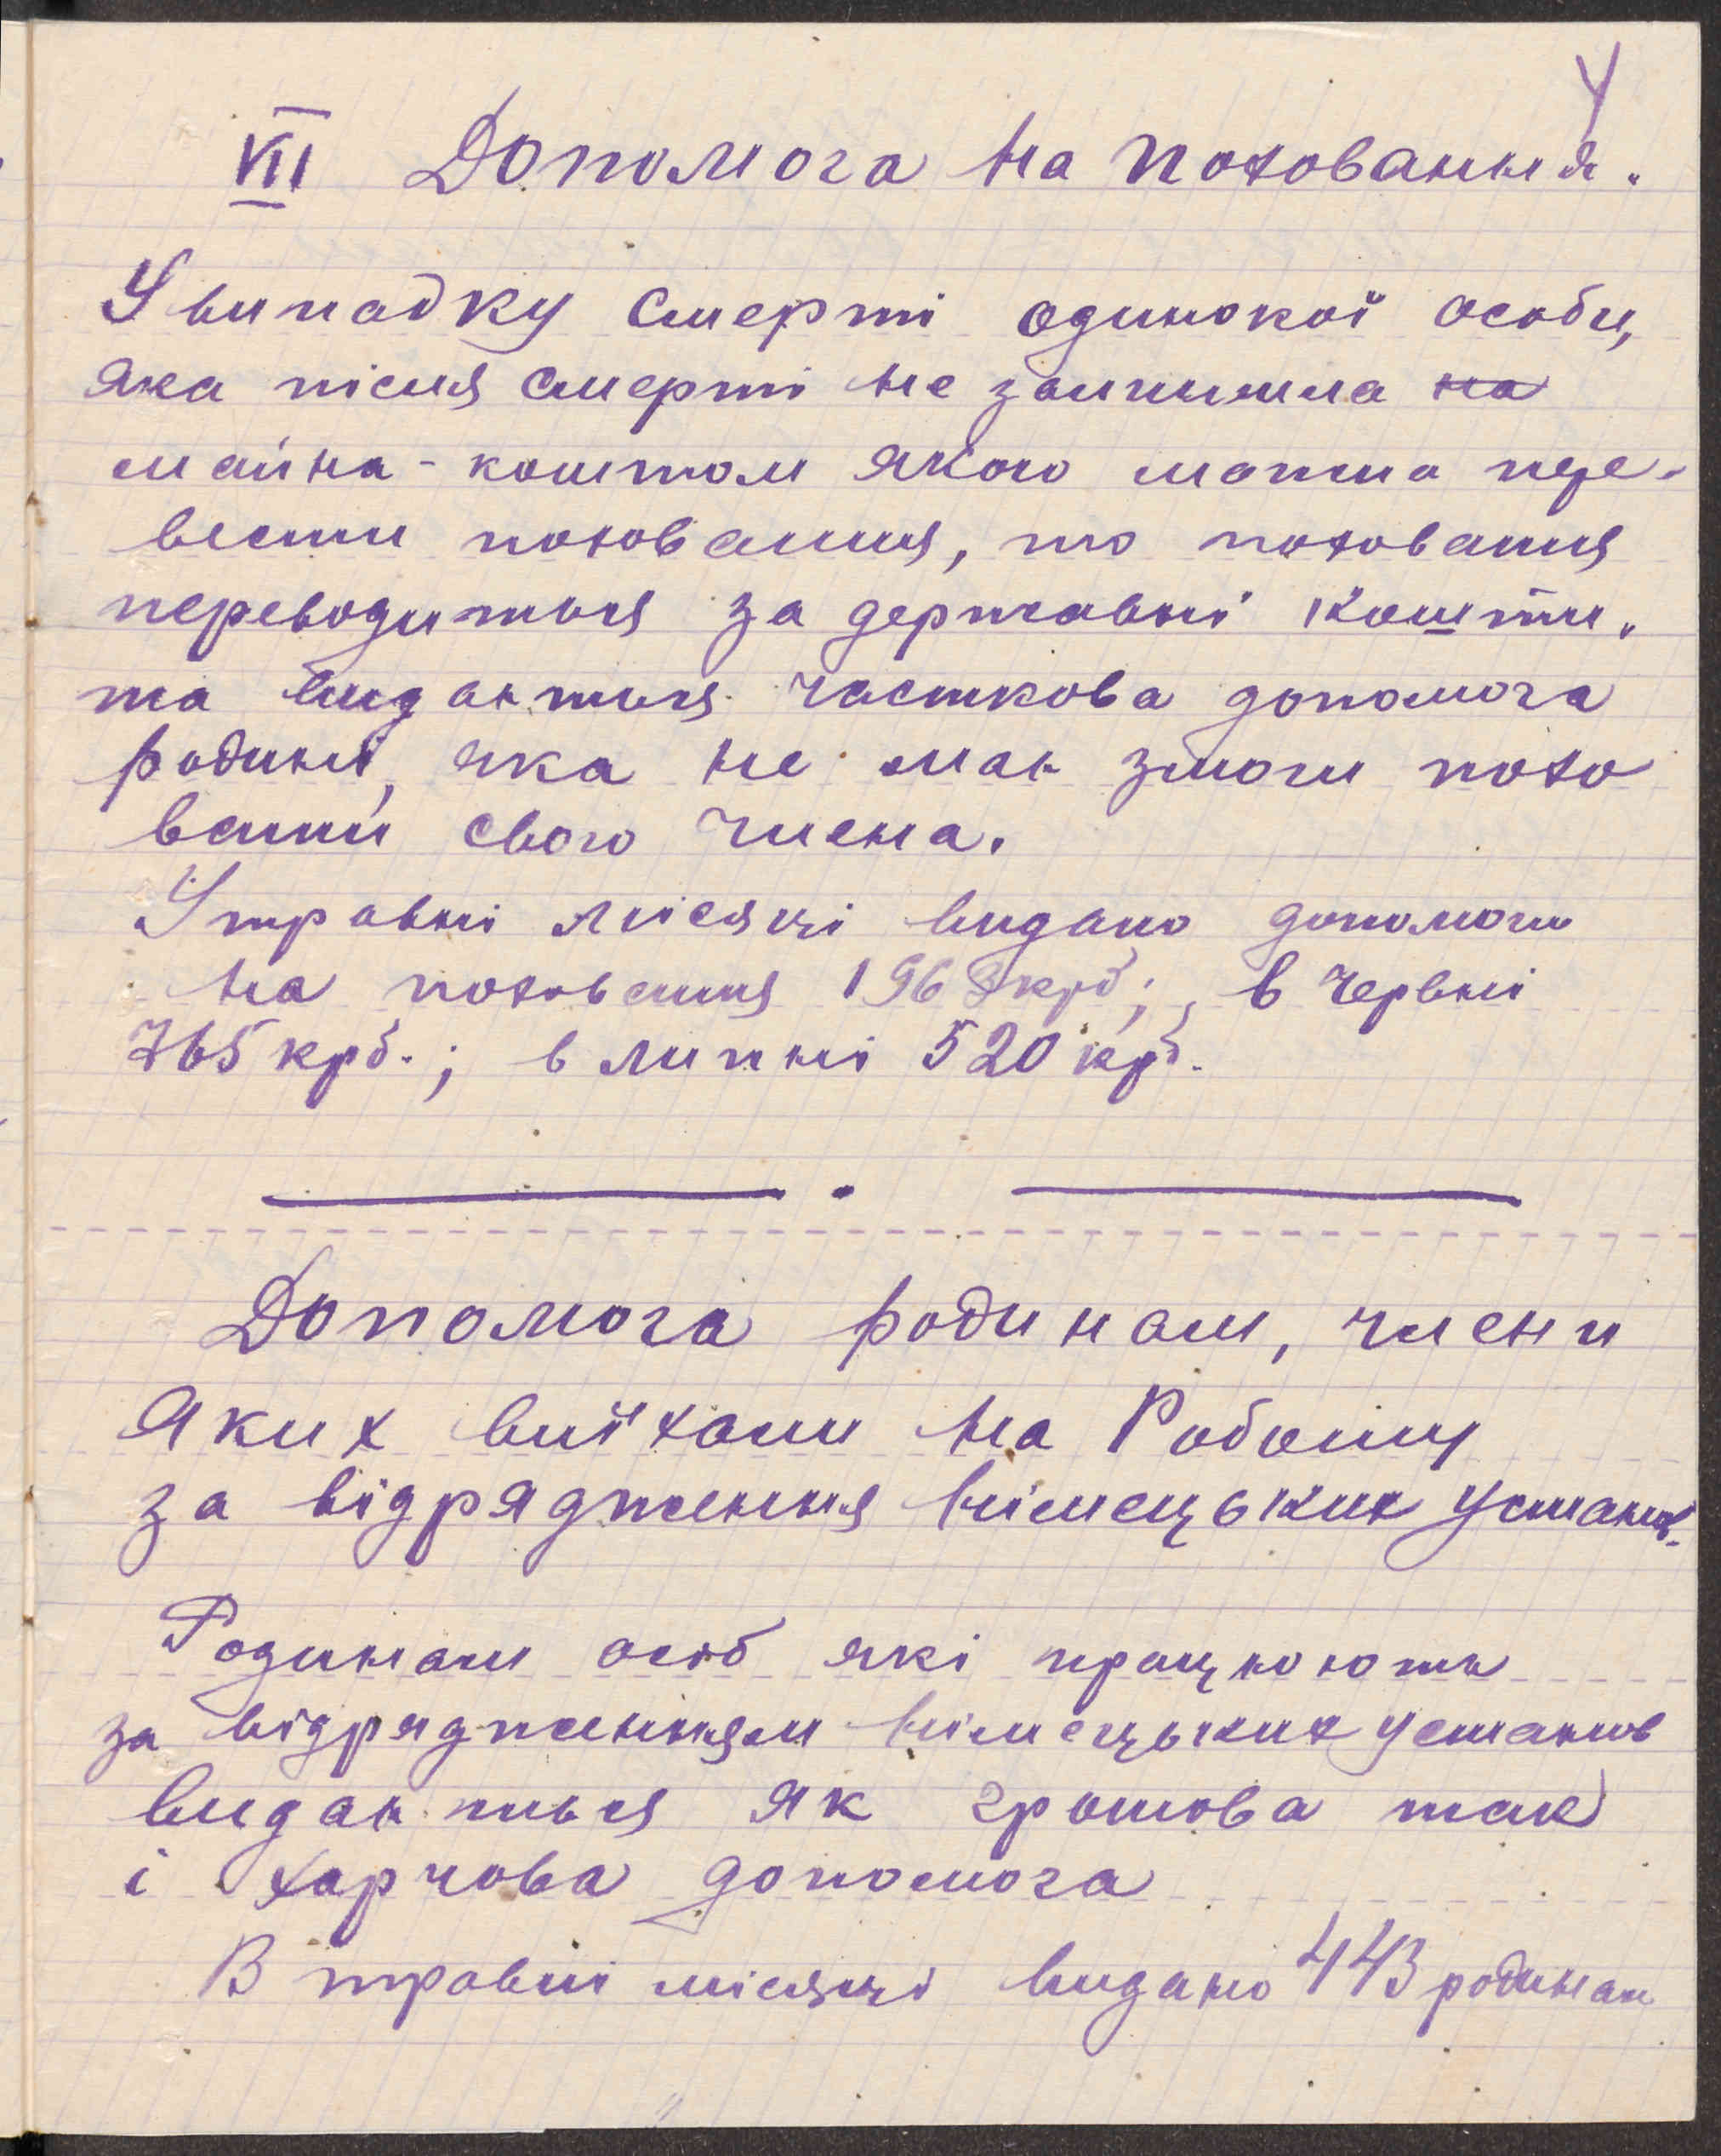 У
VII Допомога на поховання.
У випадку смерті одинокої особи,
яка після смерті не залишила на
майна - коштом якого можна пере-
вести поховання, то поховання
переводиться за державні кошти.
та видається часткова допомога
родині, яка не має змоги похо
вати свого члена.
У травні місяці видано допомоги
на поховання 1968 крб; в червні
765 крб.; в липні 520 крб.
Допомога родинам, члени
яких виїхали на Роботу
за відрядження німецьких установ.
Родинам осіб які працюють
за відрядженням німецьких установ
видається як грошова так
і харчова допомога
В травні місяці видано 443 родинам